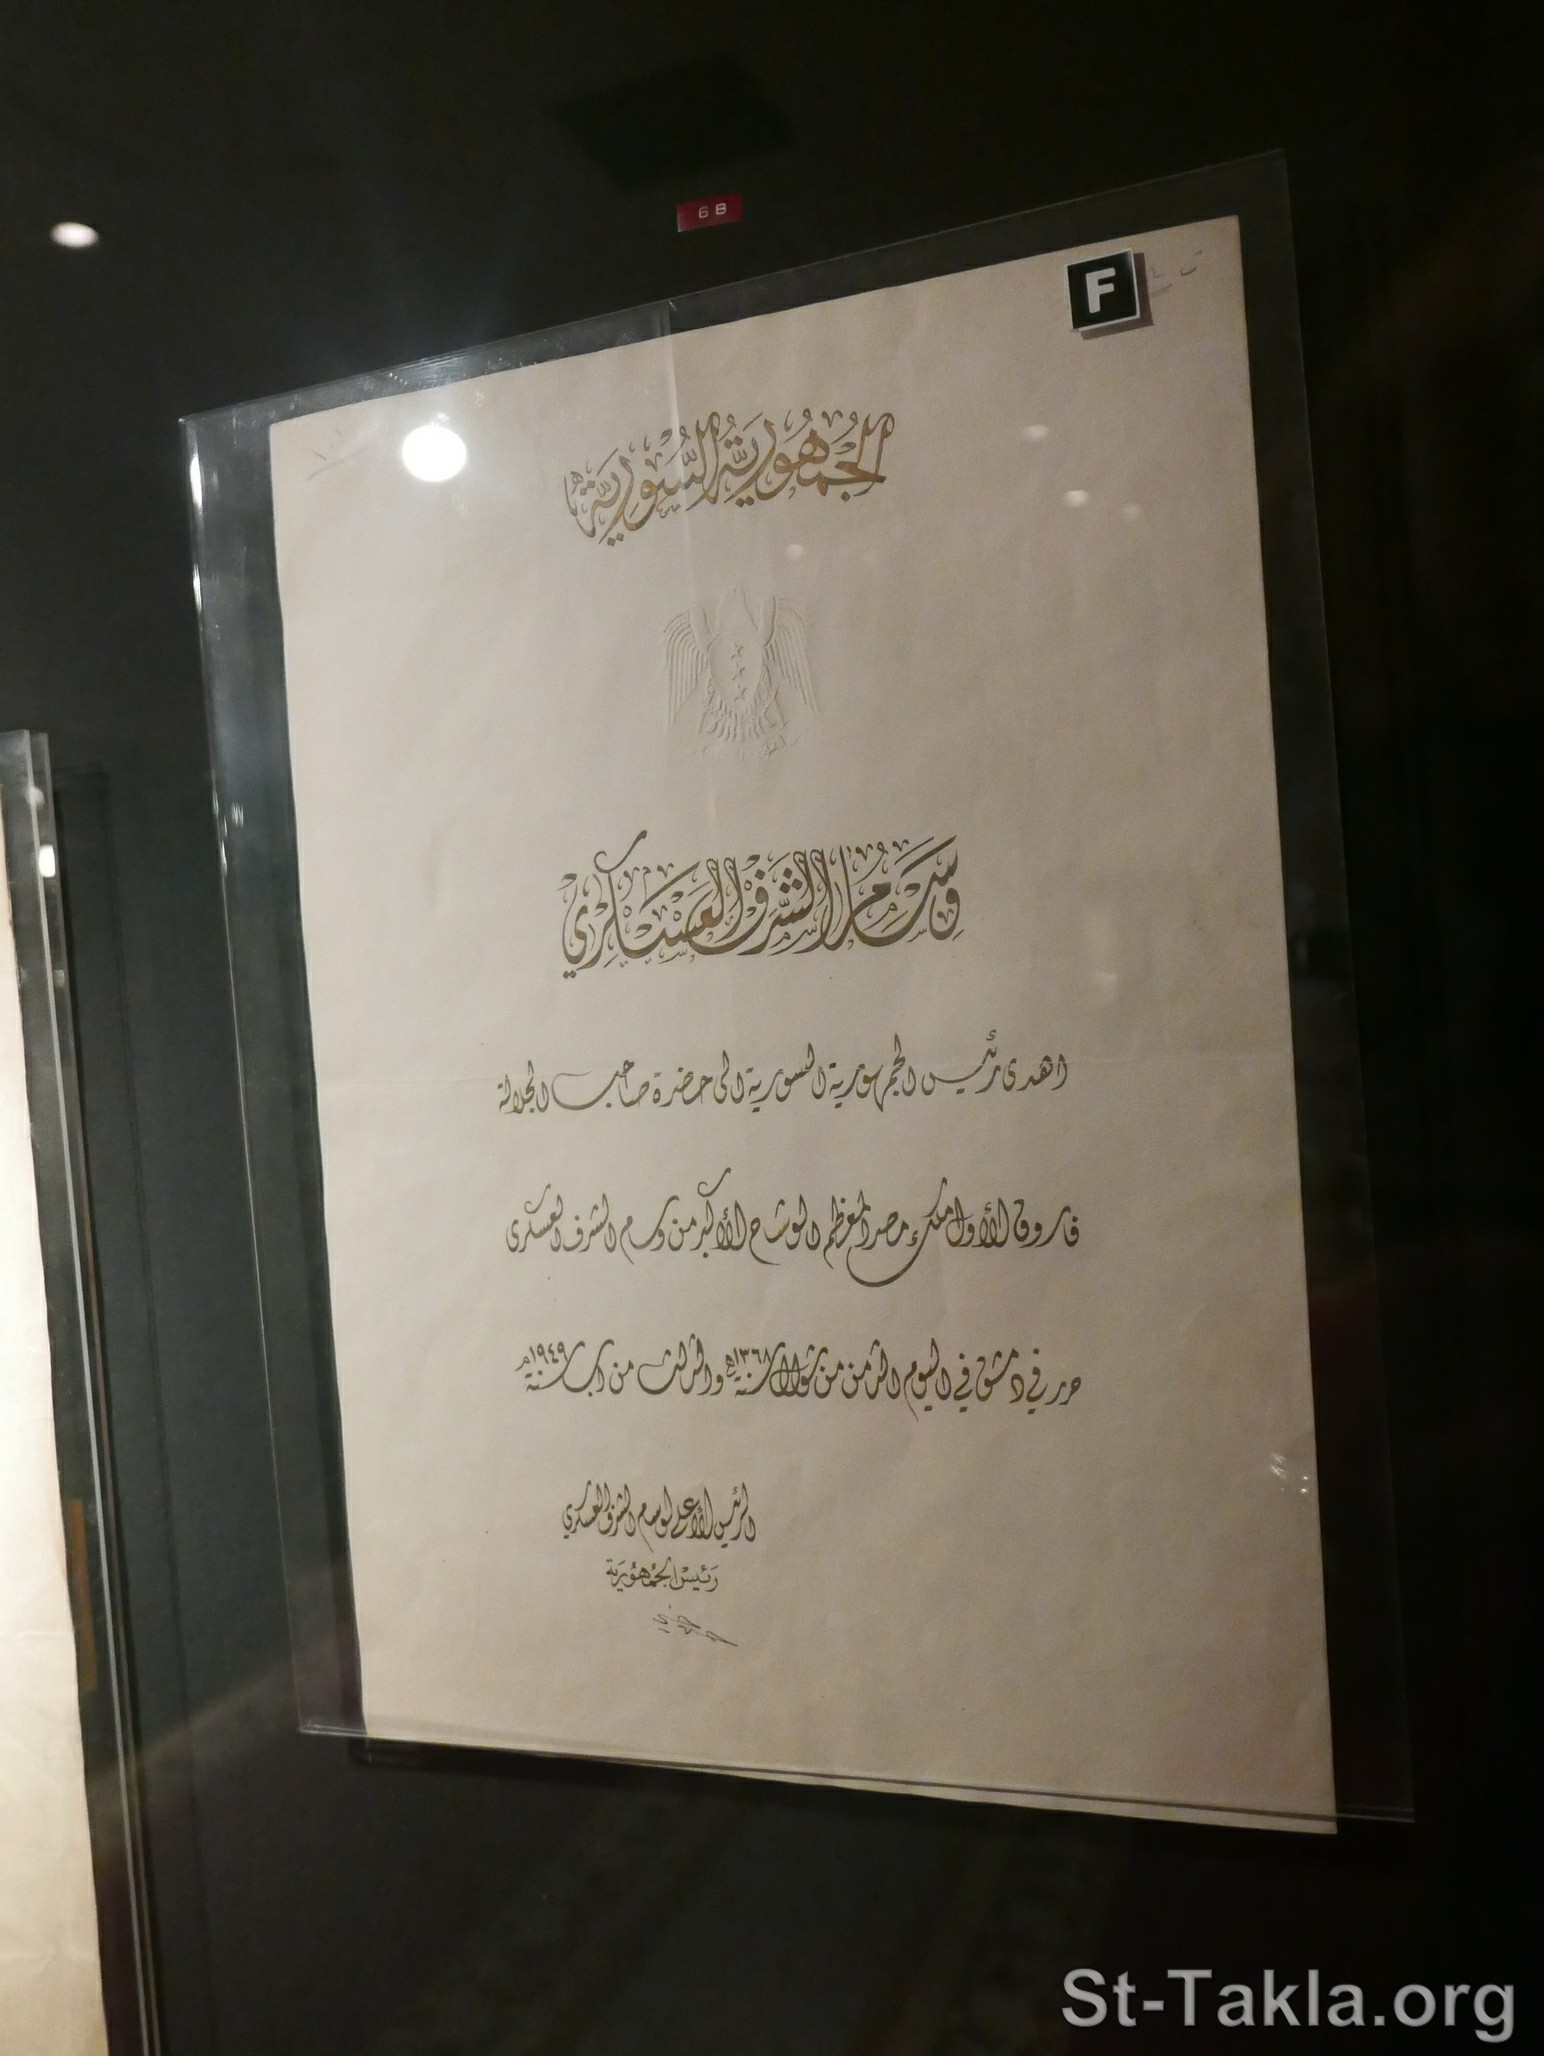 68
F
الجُمْهُوريَّة السُّوريَّة
وِسَامُ الشَّرَف العَسْكَرِي
اهدى رئيس الجمهورية السورية الى حضرة صاحب الجلالة
فاروق الأول ملك مصر المعظم الوشاح الأكبر من وسام الشرف العسكرى
حرر في دمشق في اليوم الثامن من شوال سنة ١٣٦٨ھ والثالث من آب سنة ١٩٤٩م
الرئيس الأعلى لوسام الشرف العسكري
رَئيسْ الجُمْهُورِيَّة
St-Takla.org